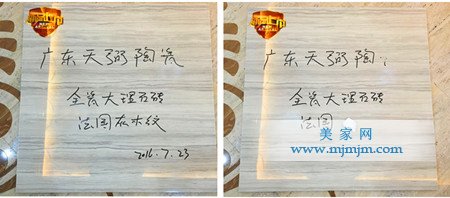 广东天弼陶瓷
全瓷大理石砖
法国灰木纹
2016.7.23
广东天弼陶
全瓷大理石砖
法国
美家网
www.mjmjm.com